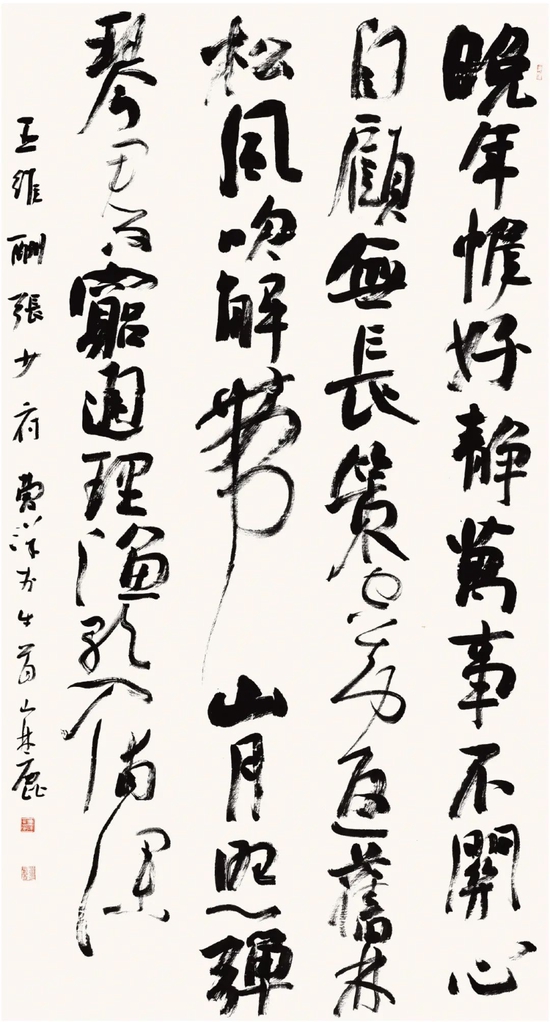 晚年惟好靜萬事不關心
自顧無長策空知返舊林
松風吹解帶山月照彈
琴君問窮通理漁歌入浦深
王維酬張少府